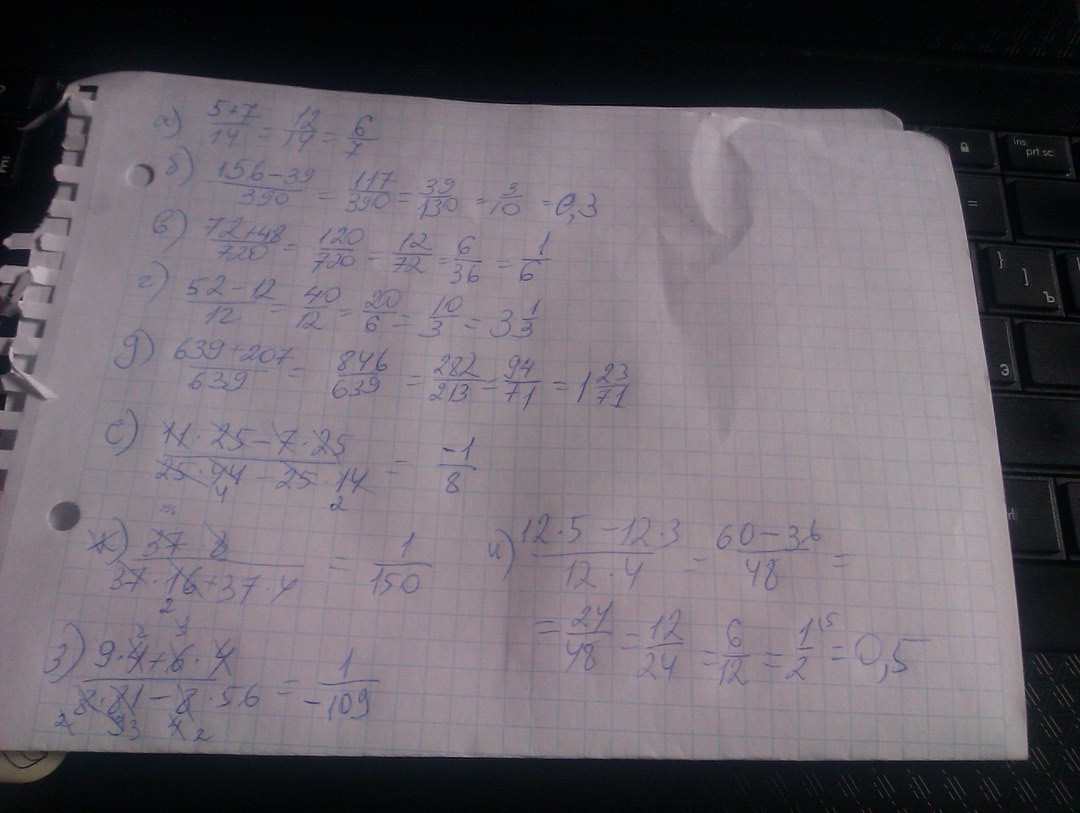 а) 5+7/14 = 12/14 = 6/7
б) 156-39/390 = 117/390 = 39/130 = 3/10 = 0,3
в) 72+48/720 = 120/720 = 12/72 = 6/36 = 1/6
г) 52-12/12 = 40/12 = 20/6 = 10/3 = 3 1/3
д) 639+207/639 = 846/639 = 282/213 = 94/71 = 1 23/71
е) 11·25-7·25/25·44-25·14 = -1/8
4 2
ж) 37 8/37·16+37·4 = 1/150
2
з) 9·4+6·4/8·81-8·56 = 1/-109
и) 12·5-12·3/12·4 = 60-36/48 =
= 24/48 = 12/24 = 6/12 = 1/2 = 0,5
ins
prt sc
=
}
]
Ъ
Э